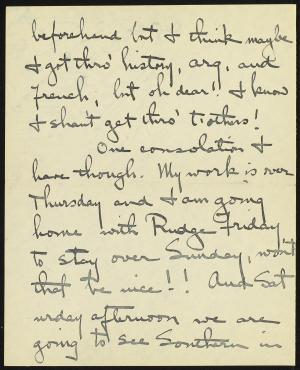 beforehand but I think maybe
I got thro' history, arg, and
French, but oh dear!! I know
I shan't get thro' t'others!
One consolation I
have though. My work is over
Thursday and I am going
home with Rudge Friday
to stay over Sunday, won't
that be nice!! And Sat
urday afternoon we are
going to see Sothern in